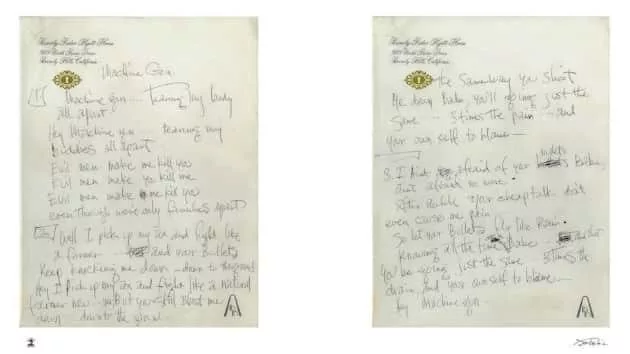 Beverly Hills, California
Machine Gun
1
Machine gun ... Tearing my body
all apart
Hey Machine gun Tearing my
bodies all apart
Evil men make me kill you
Evil men make you kill me
Evil men make me kill you
even though we're only families apart
2
Well I pick up my axe and fight like
a farmer and your Bullets
Keep knocking me down down to the ground
Hey I Pick up my axe and fight like a
farmer now
down down to the ground
Beverly Hills, California
The same way you shoot
Me down Baby you'll be going just the
same 3 times the pain and
your own self to blame
3. I Aint afraid of your Bullets Babe,
aint afraid no more
After awhile your cheap talk don't
even cause me pain
So let your Bullets fly like Rain
Knowing all the time Babe
You'll be going just the same 3 times the
pain, and your own self to blame
Machine gun